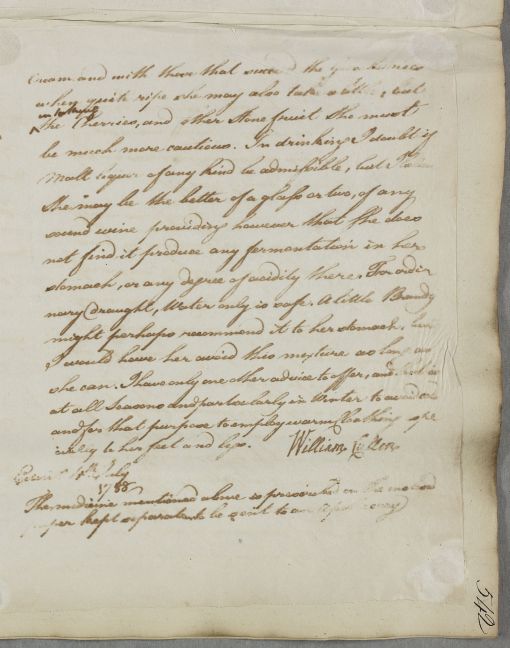 Cream and with these that succeed the
when quite ripe she may also take a little, but
as to the
the Cherries, and other Stone fruit she must
be much more cautious. In drinking I doubt if
Malt liquor of any kind be admissible, but I
She may be the better of a glass or two, of any
sound wine providing however that she does
not find it produce any fermentation in her
stomach, or any degree of acidity there. For ordi
nary Draught, Water only is safe. A little Brandy
might perhaps recommend it to her stomach, but
I would have her avoid this mixture as long as
she can. I have only one other advice to offer, and
at all Seasons and particularly in Winter to avoid
and for that purpose to employ warm cloathing espe
cially to her feet and legs. William Cullen
4th July
1788
The medicine mentioned above is prescribed on the
paper kept separate to be sent to an Apothecary
542